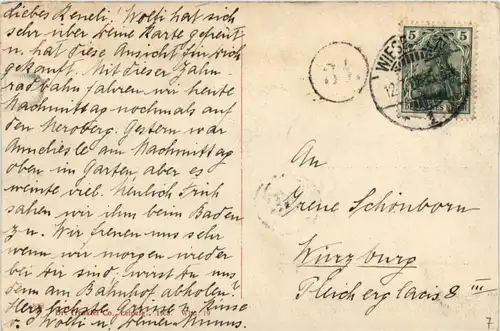 Liebes Reneli! Wolfi hat sich
sehr über deine Karte gefreut
u. hat diese Ansicht für dich
gekauft. Mit dieser Zahn-
radbahn fahren wir heute
Nachmittag nochmals auf
den Neroberg. Gestern war
Anneliesle am Nachmittag
oben im Garten, aber es
weinte viel. Neulich früh
sahen wir ihm beim Baden
zu. Wir freuen uns sehr
wenn wir morgen wieder
bei dir sind. Wirst du uns
denn am Bahnhof abholen?
Herzlichste Grüsse u. Küsse
Wolfi u.
5
5
WIES
12
An
Irene Schönborn
Würzburg
Glacis 8 III
7